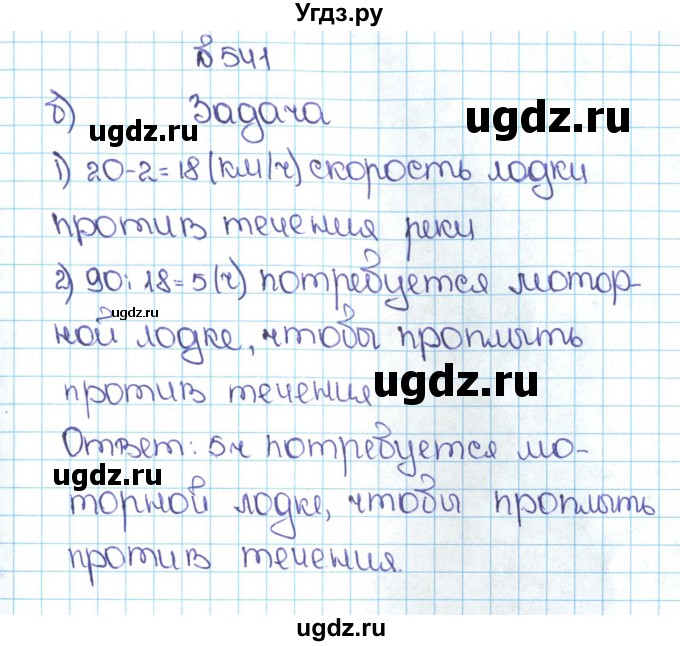 Угдз.ру
№541
б) Задача
ugdz.ru ugdz.ru
1) 20-2=18 (км/ч) скорость лодки
против течения реки
2) 90:18=5(ч) потребуется мотор-
ugdz.ru
ной лодке, чтобы проплыть
против течения ugdz.ru
Ответ: 5ч потребуется мо-
ugdz.ru
торной лодке, чтобы проплыть
против течения.
ugdz.ru